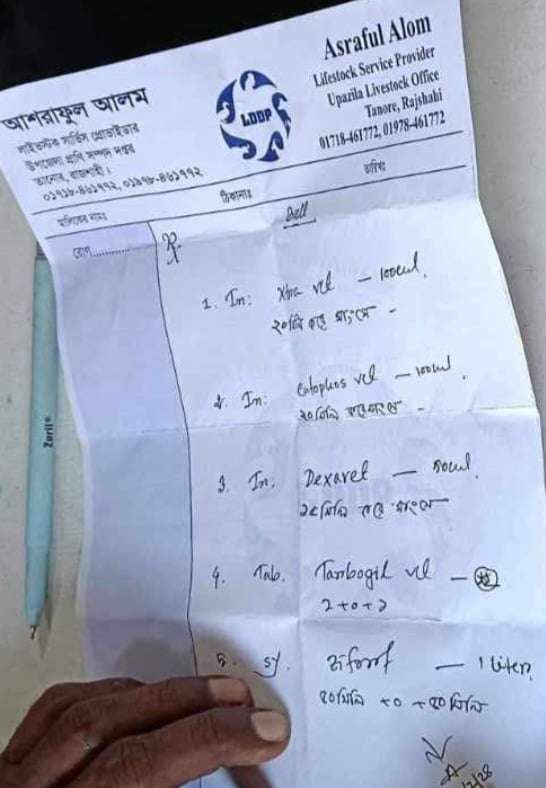 আশরাফুল আলম
লাইভস্টক সার্ভিস প্রোভাইডার
উপজেলা প্রাণি সম্পদ দপ্তর
তানোর, রাজশাহী।
০১৭১৮-৪৬১৭৭২, ০১৯৭৮-৪৬১৭৭২
LDDP
Asraful Alom
Lifestock Service Provider
Upazila Livestock Office
Tanore, Rajshahi
01718-461772, 01978-461772
মালিকের নামঃ
ঠিকানাঃ
তারিখঃ
রোগ..............
Rx
1. In: vet — 100ml.
২০মিলি করে মাংসে -
2. In: Catophos vet — 100ml.
২০মিলি করে মাংসে -
3. In. Dexavet —
করে মাংসে
4. Tab. vet —
1+0+1
5. Sy. — 1 liter
+0+
Zorile